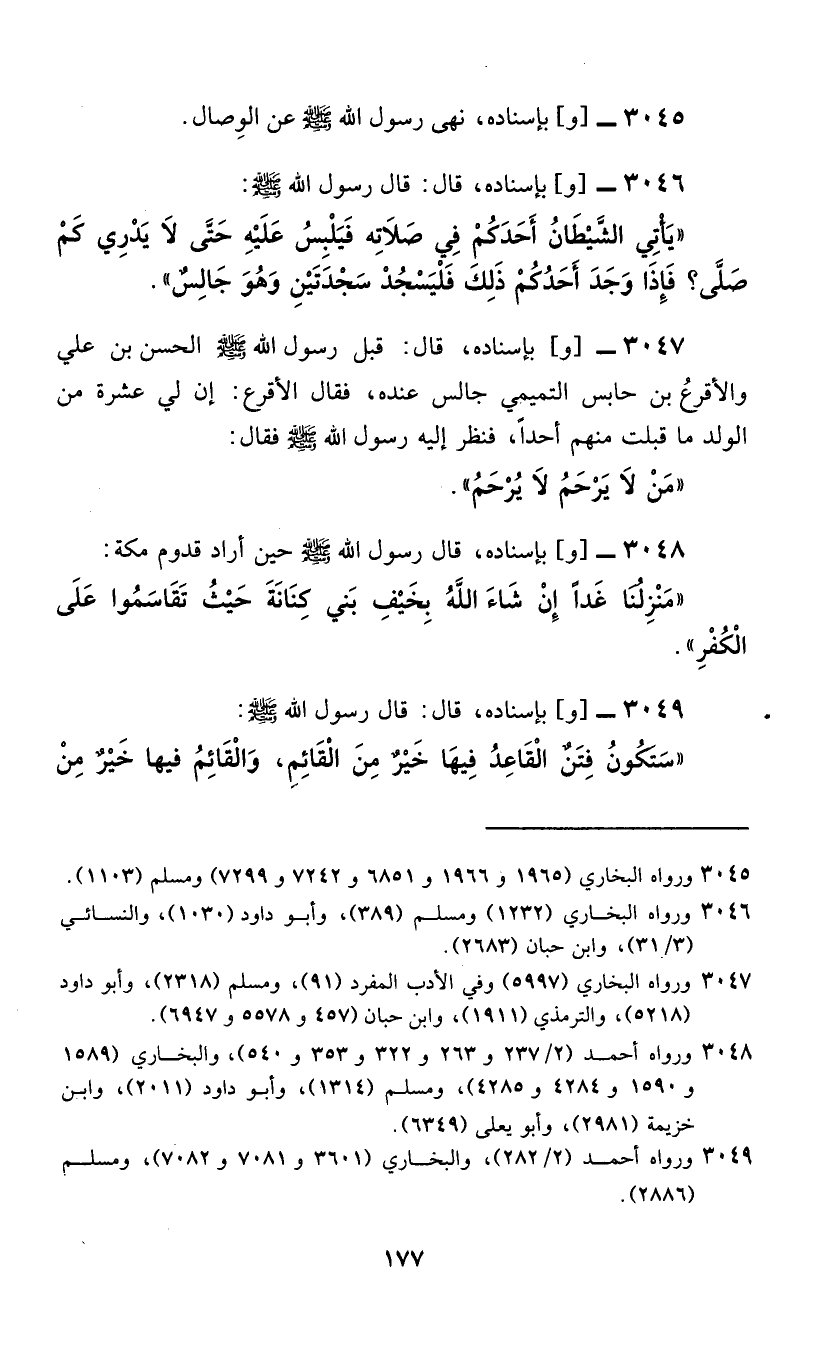 ٣٠٤٥ ــ [و] بإسناده، نهى رسول الله ﷺ عن الوِصال.
٣٠٤٦ ــ [و] بإسناده، قال: قال رسول الله ﷺ:
«يَأْتِي الشَّيْطَانُ أَحَدَكُمْ فِي صَلَاتِه فَيَلْبِسُ عَلَيْهِ حَتَّى لَا يَدْرِي كَمْ
صَلَّى؟ فَإِذَا وَجَدَ أَحَدُكُمْ ذَلِكَ فَلْيَسْجُدْ سَجْدَتَيْنِ وَهُوَ جَالِسٌ».
٣٠٤٧ ــ [و] بإسناده، قال: قبل رسول الله ﷺ الحسن بن علي
والأقرعُ بن حابس التميمي جالس عنده، فقال الأقرع: إن لي عشرة من
الولد ما قبلت منهم أحداً، فنظر إليه رسول الله ﷺ فقال:
«مَنْ لَا يَرْحَمُ لَا يُرْحَمُ».
٣٠٤٨ ــ [و] بإسناده، قال رسول الله ﷺ حين أراد قدوم مكة:
«مَنْزِلُنَا غَداً إِنْ شَاءَ اللَّهُ بِخَيْفِ بَنِي كِنَانَةَ حَيْثُ تَقَاسَمُوا عَلَى
الْكُفْرِ».
٣٠٤٩ ــ [و] بإسناده، قال: قال رسول الله ﷺ:
«سَتَكُونُ فِتَنٌ الْقَاعِدُ فِيهَا خَيْرٌ مِنَ الْقَائِمِ، وَالْقَائِمُ فيها خَيْرٌ مِنْ
٣٠٤٥ ورواه البخاري (١٩٦٥ و ١٩٦٦ و ٦٨٥١ و ٧٢٤٢ و ٧٢٩٩) ومسلم (١١٠٣).
٣٠٤٦ ورواه البخاري (١٢٣٢) ومسلم (٣٨٩)، وأبو داود (١٠٣٠)، والنسائي
(٣/ ٣١)، وابن حبان (٢٦٨٣).
٣٠٤٧ ورواه البخاري (٥٩٩٧) وفي الأدب المفرد (٩١)، ومسلم (٢٣١٨)، وأبو داود
(٥٢١٨)، والترمذي (١٩١١)، وابن حبان (٤٥٧ و ٥٥٧٨ و ٦٩٤٧).
٣٠٤٨ ورواه أحمد (٢/ ٢٣٧ و ٢٦٣ و ٣٢٢ و ٣٥٣ و ٥٤٠)، والبخاري (١٥٨٩
و ١٥٩٠ و ٤٢٨٤ و ٤٢٨٥)، ومسلم (١٣١٤)، وأبو داود (٢٠١١)، وابن
خزيمة (٢٩٨١)، وأبو يعلى (٦٣٤٩).
٣٠٤٩ ورواه أحمد (٢/ ٢٨٢)، والبخاري (٣٦٠١ و ٧٠٨١ و ٧٠٨٢)، ومسلم
(٢٨٨٦).
١٧٧